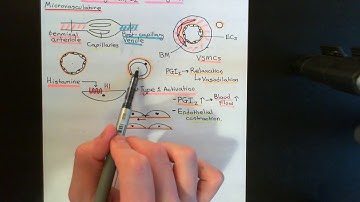 Microvasculature
Terminal arteriole
Capillaries
Post-capillary venule
ECs
BM
VSMCs
PGI₂ → Relaxation
→ Vasodilation
Histamine
H1
Type 1 Activation
- PGI₂ ↑ → Blood Flow ↑
- Endothelial contraction